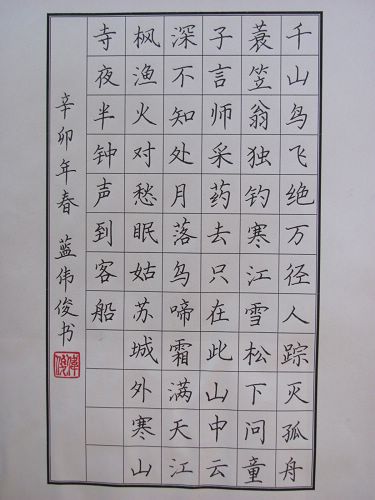 千山鸟飞绝万径人踪灭孤舟
蓑笠翁独钓寒江雪松下问童
子言师采药去只在此山中云
深不知处月落乌啼霜满天江
枫渔火对愁眠姑苏城外寒山
寺夜半钟声到客船
辛卯年春 蓝伟俊书